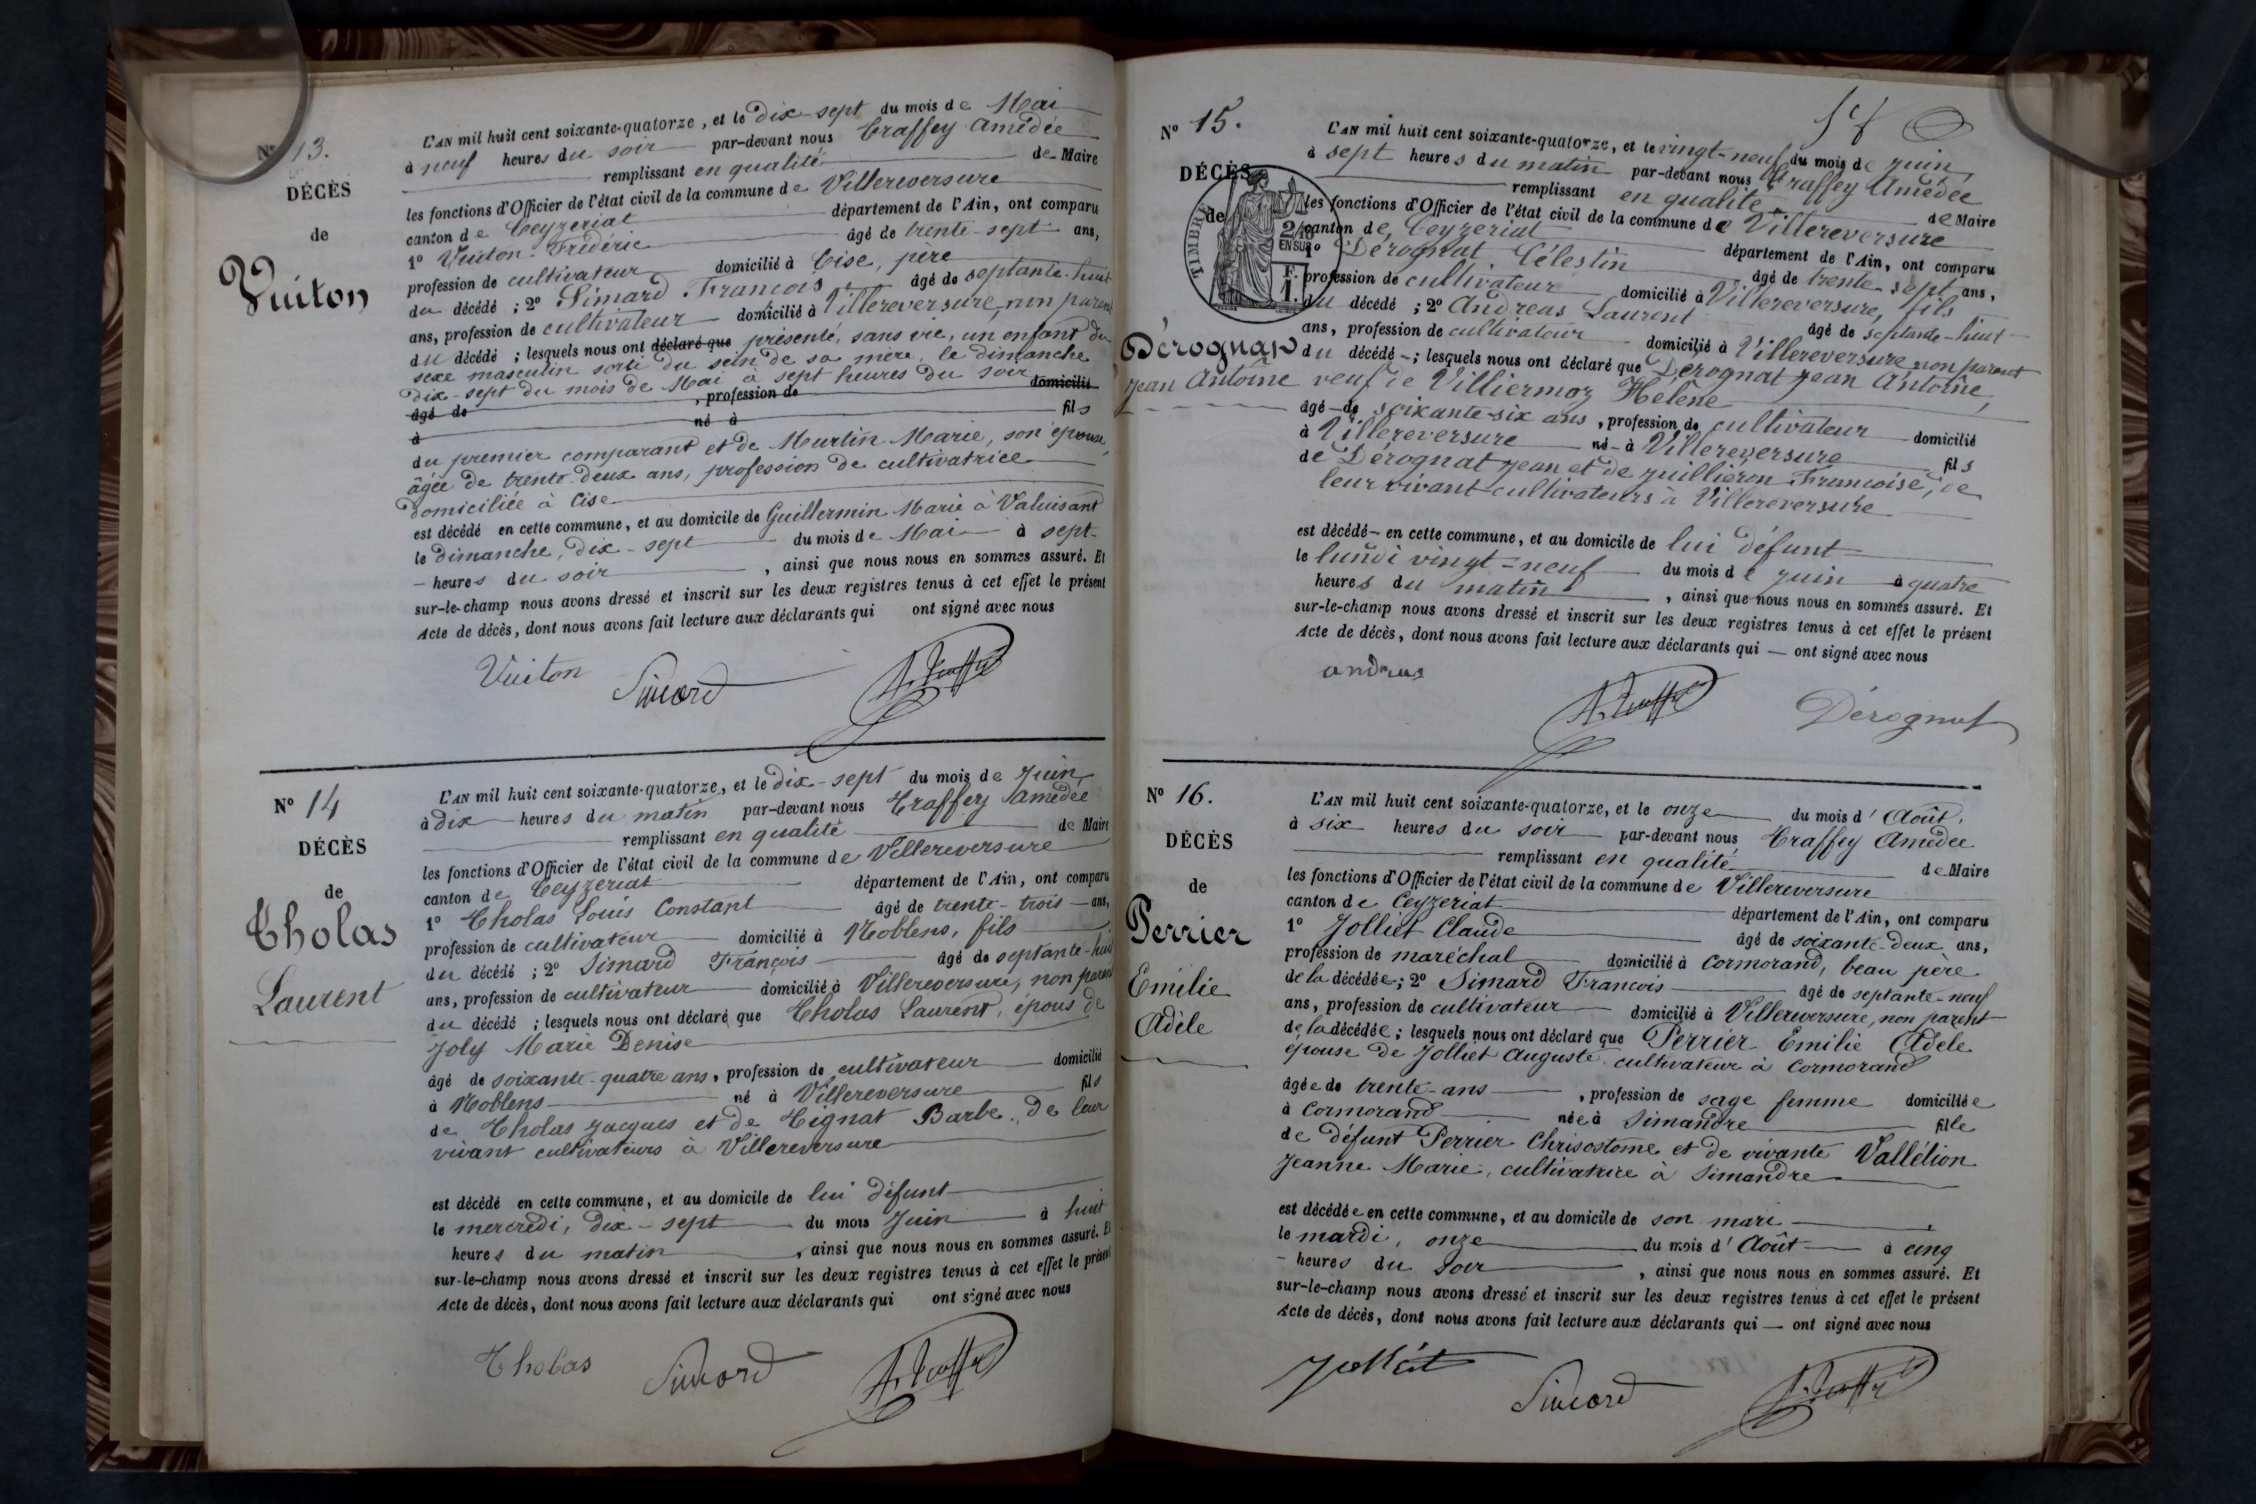 Nº 13.
DÉCÈS
de
Vuiton
L'AN mil huit cent soixante-quatorze, et le dix-sept du mois de Mai
à neuf heures du soir par-devant nous Traffey Amédée
remplissant en qualité de Maire
les fonctions d'Officier de l'état civil de la commune de Villereversure
canton de Ceyzeriat département de l'Ain, ont comparu
1º Vuiton Frédéric âgé de trente-sept ans,
profession de cultivateur domicilié à Cise, père
du décédé ; 2º Simard François âgé de septante-huit
ans, profession de cultivateur domicilié à Villereversure, non parent
du décédé ; lesquels nous ont déclaré que présenté, sans vie, un enfant du
sexe masculin sorti du sein de sa mère, le dimanche
dix-sept du mois de Mai à sept heures du soir domicilié
âgé de , profession de
à né à fils
du premier comparant et de Murtin Marie, son épouse,
âgée de trente-deux ans, profession de cultivatrice
domiciliée à Cise
est décédé en cette commune, et au domicile de Guillermin Marie à Valuisant
le dimanche, dix-sept du mois de Mai à sept
- heures du soir , ainsi que nous nous en sommes assuré. Et
sur-le-champ nous avons dressé et inscrit sur les deux registres tenus à cet effet le présent
Acte de décès, dont nous avons fait lecture aux déclarants qui ont signé avec nous
Vuiton Simard A. Traffey
Nº 14
DÉCÈS
de
Tholas
Laurent
L'AN mil huit cent soixante-quatorze, et le dix-sept du mois de Juin,
à dix heures du matin par-devant nous Traffey Amédée
remplissant en qualité de Maire
les fonctions d'Officier de l'état civil de la commune de Villereversure
canton de Ceyzeriat département de l'Ain, ont comparu
1º Tholas Louis Constant âgé de trente-trois ans,
profession de cultivateur domicilié à Noblens, fils
du décédé ; 2º Simard François âgé de septante-huit
ans, profession de cultivateur domicilié à Villereversure, non parent
du décédé ; lesquels nous ont déclaré que Tholas Laurent, époux de
Joly Marie Denise
âgé de soixante-quatre ans, profession de cultivateur domicilié
à Noblens né à Villereversure fils
de Tholas Jacques et de Tignat Barbe, de leur
vivant cultivateurs à Villereversure
est décédé en cette commune, et au domicile de lui défunt
le mercredi, dix-sept du mois Juin à huit
heures du matin , ainsi que nous nous en sommes assuré. Et
sur-le-champ nous avons dressé et inscrit sur les deux registres tenus à cet effet le présent
Acte de décès, dont nous avons fait lecture aux déclarants qui ont signé avec nous
Tholas Simard A. Traffey
Nº 15.
DÉCÈS
de
TIMBRE
2/10
EN SUS
F.
1.
Dérognat
Jean Antoine
L'AN mil huit cent soixante-quatorze, et le vingt-neuf du mois de Juin,
à sept heures du matin par-devant nous Traffey Amédée
remplissant en qualité de Maire
les fonctions d'Officier de l'état civil de la commune de Villereversure
canton de Ceyzeriat département de l'Ain, ont comparu
1º Dérognat Célestin âgé de trente-sept ans,
profession de cultivateur domicilié à Villereversure, fils
du décédé ; 2º Andreas Laurent âgé de septante-huit
ans, profession de cultivateur domicilié à Villereversure non parent
du décédé ; lesquels nous ont déclaré que Dérognat Jean Antoine,
veuf de Villiermoz Hélène
âgé de soixante-six ans, profession de cultivateur domicilié
à Villereversure né à Villereversure fils
de Dérognat Jean et de Juilliéron Françoise, de
leur vivant cultivateurs à Villereversure
est décédé en cette commune, et au domicile de lui défunt
le lundi vingt-neuf du mois de Juin à quatre
heures du matin , ainsi que nous nous en sommes assuré. Et
sur-le-champ nous avons dressé et inscrit sur les deux registres tenus à cet effet le présent
Acte de décès, dont nous avons fait lecture aux déclarants qui — ont signé avec nous
andreas A. Traffey Dérognat
Nº 16.
DÉCÈS
de
Perrier
Emilie
Adèle
L'AN mil huit cent soixante-quatorze, et le onze du mois d'Août,
à six heures du soir par-devant nous Traffey Amédée
remplissant en qualité de Maire
les fonctions d'Officier de l'état civil de la commune de Villereversure
canton de Ceyzeriat département de l'Ain, ont comparu
1º Jolliet Claude âgé de soixante-deux ans,
profession de maréchal domicilié à Cormorand, beau père
de la décédée ; 2º Simard François âgé de septante-neuf
ans, profession de cultivateur domicilié à Villereversure, non parent
de la décédée ; lesquels nous ont déclaré que Perrier Emilie Adèle
épouse de Jolliet Auguste cultivateur à Cormorand
âgée de trente ans , profession de sage femme domiciliée
à Cormorand née à Simandre fille
de défunt Perrier Chrisostome et de vivante Vallélion
Jeanne Marie, cultivatrice à Simandre
est décédée en cette commune, et au domicile de son mari
le mardi, onze du mois d'Août à cinq
- heures du soir , ainsi que nous nous en sommes assuré. Et
sur-le-champ nous avons dressé et inscrit sur les deux registres tenus à cet effet le présent
Acte de décès, dont nous avons fait lecture aux déclarants qui — ont signé avec nous
Jolliet Simard A. Traffey